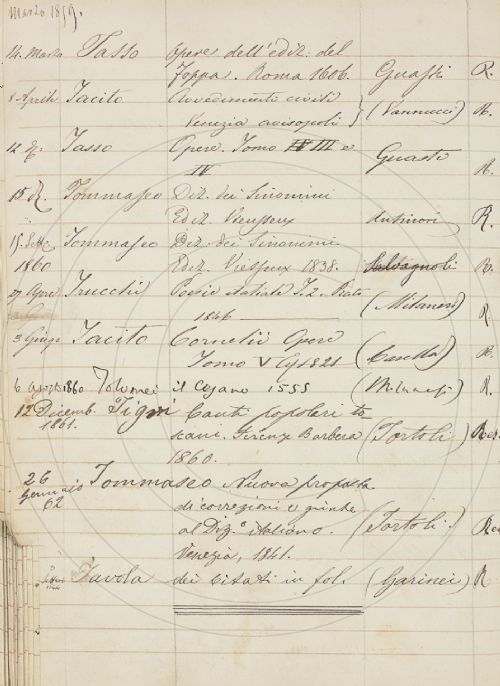 Marzo 1859.
14. Marzo Tasso Opere dell'ediz: del
Foppas. Roma 1606. Guasti R.
8 Aprile Tacito Avvedimenti civili
Venezia (Vannucci) R.
12 Tasso Opere. Tomo III e
IV Guasti R.
15 Tommaseo Diz. dei Sinonimi
Ediz. Vieusseux Antinori R.
15. Tommaseo Diz. dei Sinonimi
1860 Ediz. Viesseux 1838. R.
Trucchi Poesie T. 2. Prato
1846 (Milanesi) R.
3 Giug. Tacito Cornelii Opere
Tomo V 1821 R.
6 Agosto 1860 Tolomei il Cesano 1555 (Milanesi) R.
12 Dicemb. Tigri Canti popolari to
1861. scani. Firenze Barbera (Tortoli)
1860.
26 Tommaseo Nuova proposta
Gennaio di correzioni e giunte
62 al Diz.º italiano. (Tortoli)
Venezia, 1841.
Tavola dei citati in fol. (Garinei) R